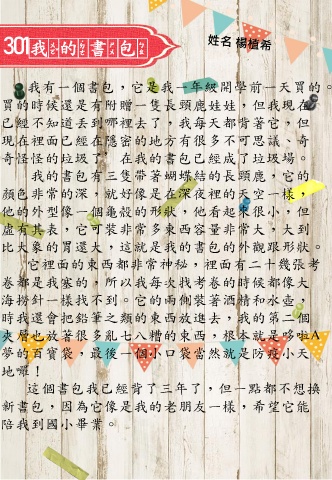 301我的書包
姓名 楊植希
我有一個書包，它是我一年級開學前一天買的。
買的時候還是有附贈一隻長頸鹿娃娃，但我現在
已經不知道丟到哪裡去了，我每天都背著它，但
現在裡面已經在隱密的地方有很多不可思議、奇
奇怪怪的垃圾了，在我的書包已經成了垃圾場。
我的書包有三隻帶著蝴蝶結的長頸鹿，它的
顏色非常的深，就好像是在深夜裡的天空一樣，
他的外型像一個龜殼的形狀，他看起來很小，但
虛有其表，它可裝非常多東西容量非常大，大到
比大象的胃還大，這就是我的書包的外觀跟形狀。
它裡面的東西都非常神秘，裡面有二十幾張考
卷都是我塞的，所以我每次找考卷的時候都像大
海撈針一樣找不到。它的兩側裝著酒精和水壺，
時我還會把鉛筆之類的東西放進去，我的第二個
夾層也放著很多亂七八糟的東西，根本就是哆啦A
夢的百寶袋，最後一個小口袋當然就是防疫小天
地囉！
這個書包我已經背了三年了，但一點都不想換
新書包，因為它像是我的老朋友一樣，希望它能
陪我到國小畢業。